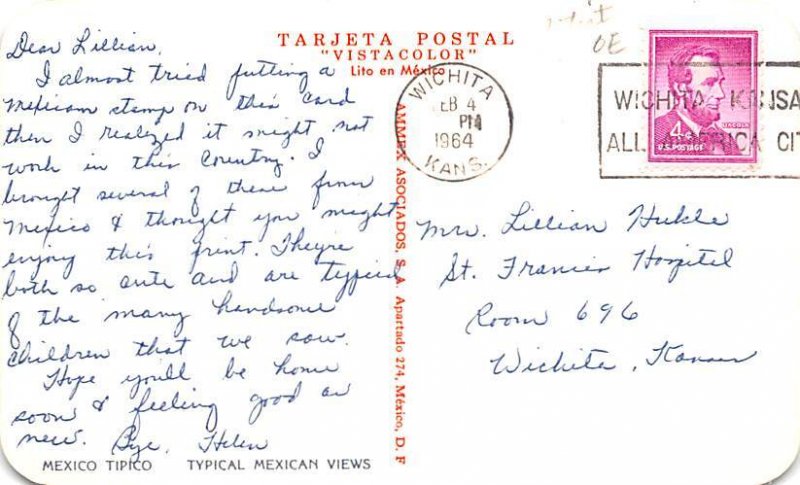 TARJETA POSTAL
"VISTACOLOR"
Lito en México
Dear Lillian,
I almost tried putting a
Mexican stamp on this card
then I realized it might not
work in this country. I
brought several of these from
Mexico & thought you might
enjoy this print. They're
both so cute and are typical
of the many handsome
children that we saw.
Hope you'll be home
soon & feeling good as
new. Bye, Helen
MEXICO TIPICO TYPICAL MEXICAN VIEWS
AMMEX ASOCIADOS, S. A. Apartado 274, México, D. F
WICHITA
FEB 4
PM
1964
KANS.
OE
WICHITA KANSA
ALL AMERICA CIT
LINCOLN
4¢
U.S. POSTAGE
Mrs. Lillian Hukle
St. Francis Hospital
Room 696
Wichita, Kansas